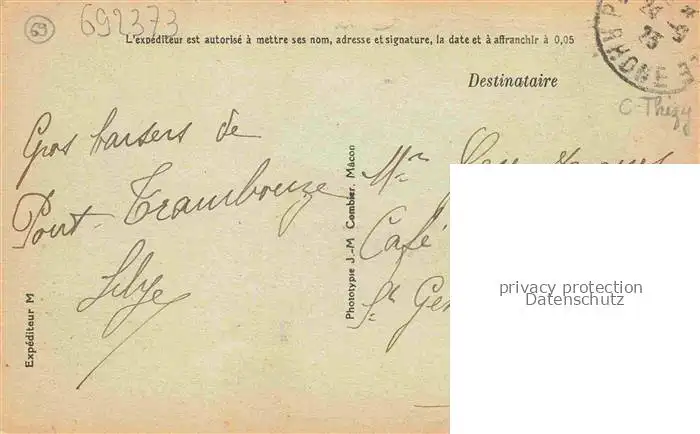 69
692373
L'expéditeur est autorisé à mettre ses nom, adresse et signature, la date et à affranchir à 0,05
24 -9
25
RHONE
Destinataire
C. Thizy
Gros baisers de
Pont-Trambouze
Expéditeur M
Phototypie J.-M Combier, Mâcon
Mr
Café
St Ge
privacy protection
Datenschutz